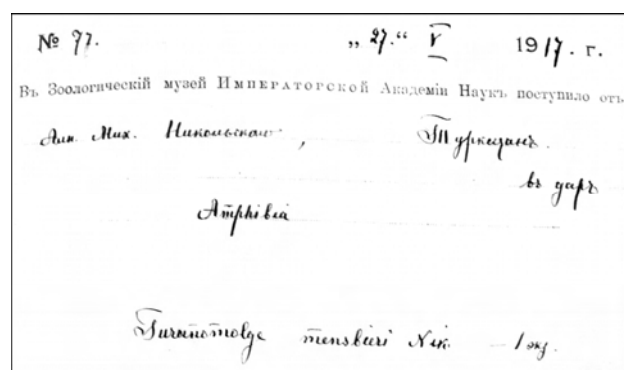 № 77. „ 27.“ V 1917. г.
Въ Зоологическій музей Императорской Академіи Наукъ поступило отъ
Алн. Мих. Никольскаго, Туркестанъ.
въ даръ
Amphibia
Turanomolge mensbieri Nik. — 1 экз.